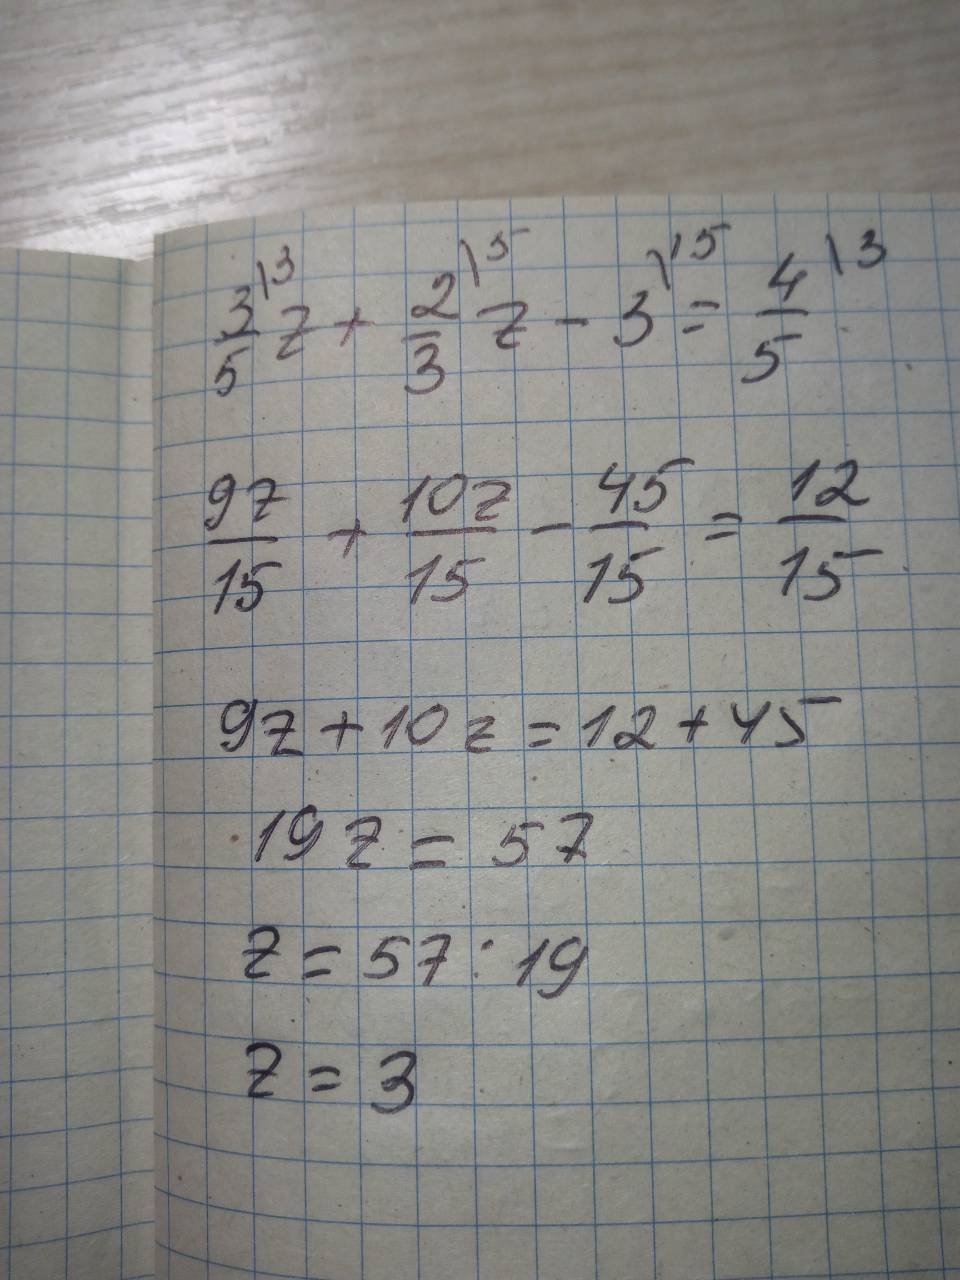 3/5\3 z + 2/3\5 z - 3\15 = 4/5\3
9z/15 + 10z/15 - 45/15 = 12/15
9z + 10z = 12 + 45
19z = 57
z = 57 : 19
z = 3